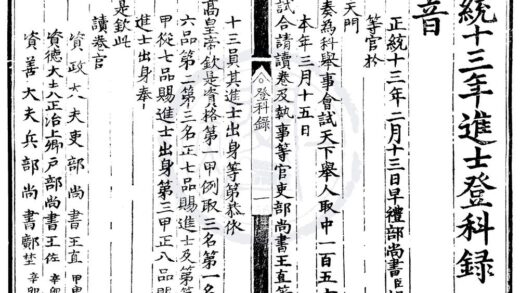 統十三年進士登科錄
音
正統十三年二月十三日早禮部尚書臣
等官於
天門
奏為科舉事會試天下舉人取中一百五十
本年三月十五日
試合請讀卷及執事等官吏部尚書王直等
登科錄
一
十三員其進士出身等第恭依
高皇帝欽定資格第一甲例取三名第一名
六品第二第三名正七品賜進士及第第
甲從七品賜進士出身第三甲正八品賜
進士出身奉
是欽此
讀卷官
資政大夫吏部尚書王直
資德大夫正治上卿戶部尚書王佐 辛卯
資善大夫兵部尚書鄺埜 辛卯